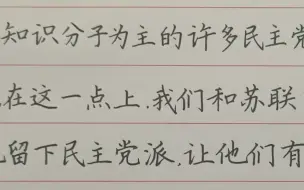 知识分子为主的许多民主党
在这一点上.我们和苏联
留下民主党派,让他们有